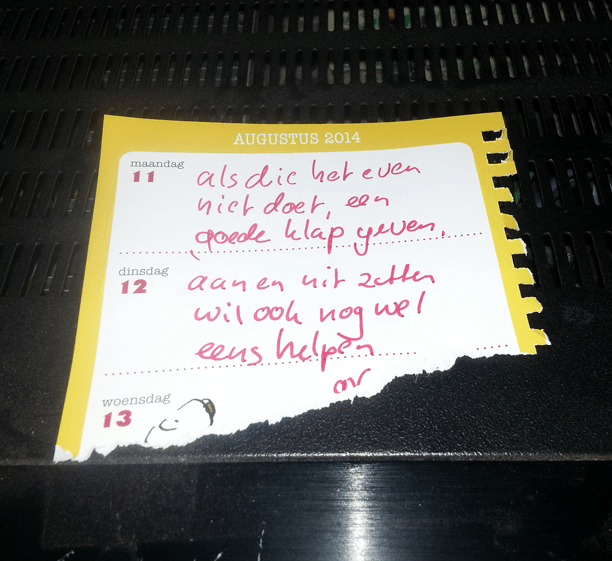 AUGUSTUS 2014
maandag
11
als die het even
niet doet, een
goede klap geven.
dinsdag
12
aan en uit zetten
wil ook nog wel
eens helpen
woensdag
13